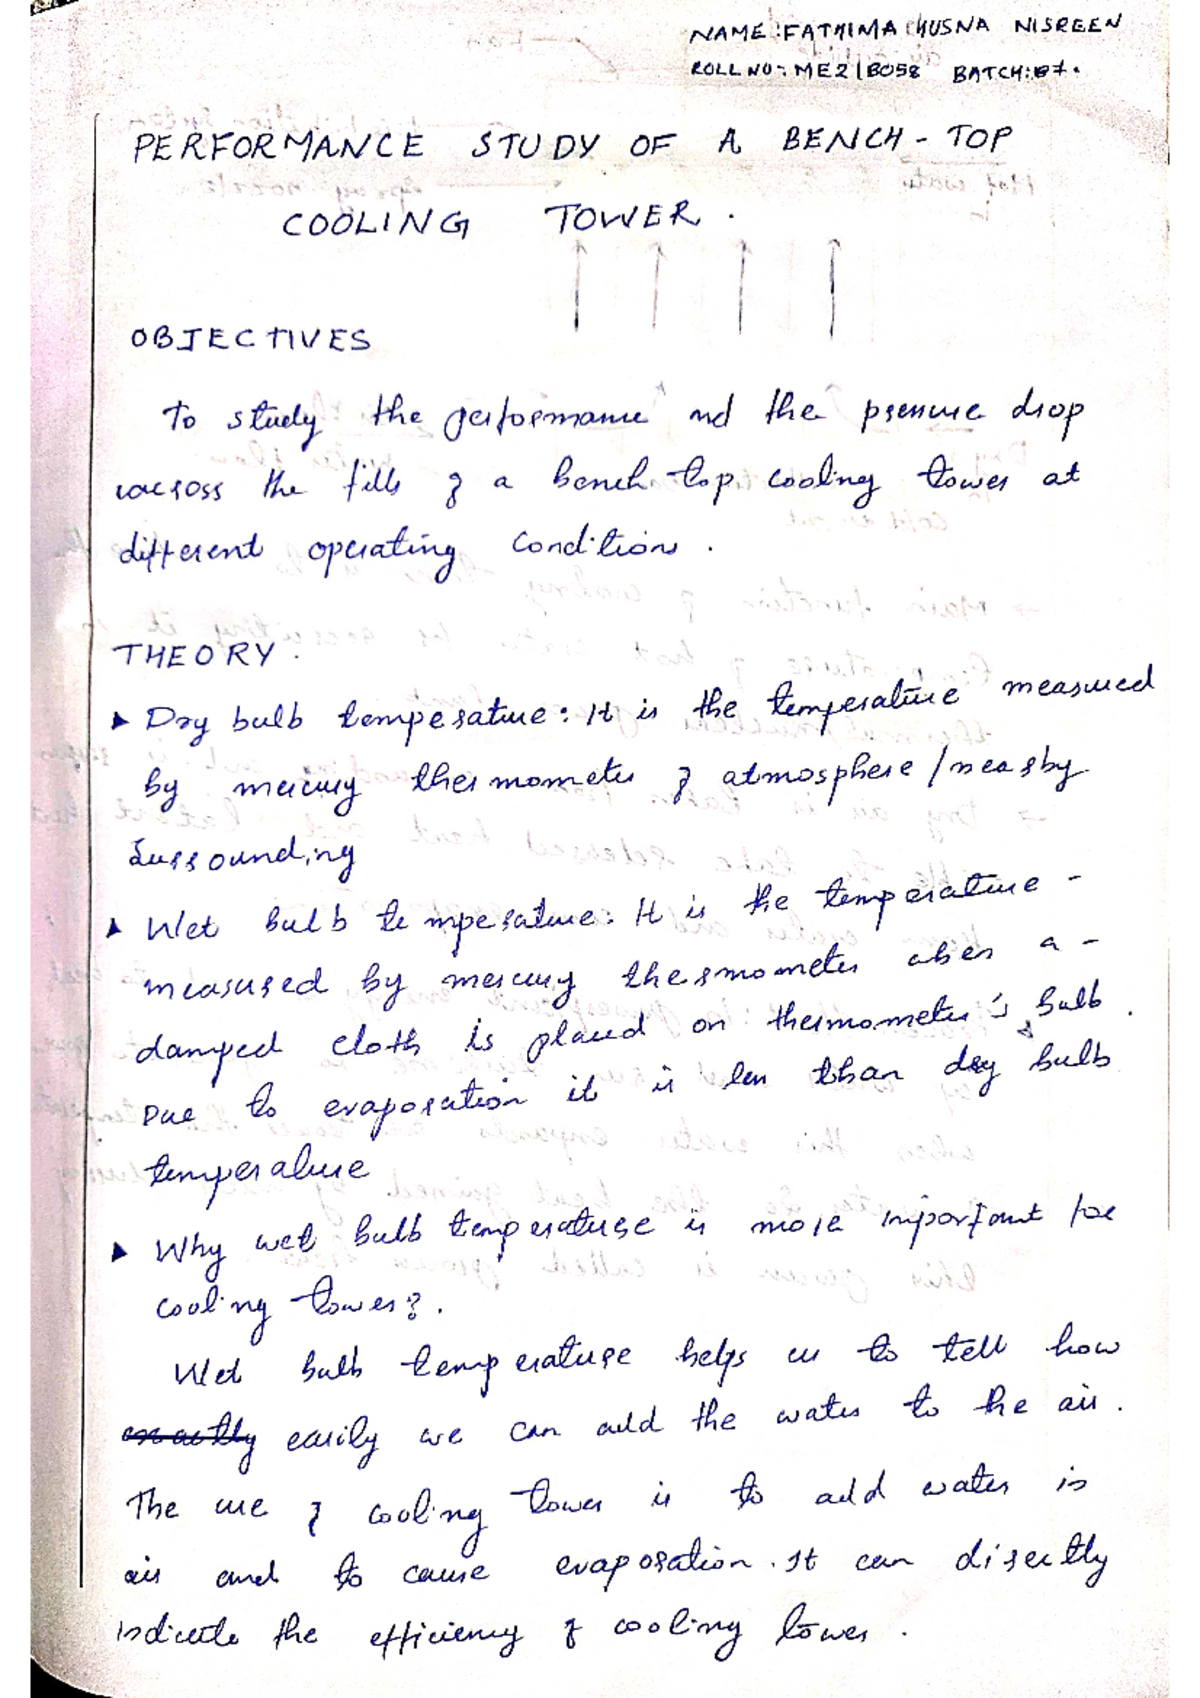 NAME: FATHIMA HUSNA NISREEN
ROLL NO:- ME21B058 BATCH: B7.
PERFORMANCE STUDY OF A BENCH-TOP
COOLING TOWER.
OBJECTIVES
To study the performance and the pressure drop
across the fills of a bench top cooling tower at
different operating conditions.
THEORY.
▸ Dry bulb temperature: It is the temperature measured
by mercury thermometer of atmosphere/nearby
surrounding
▸ Wet bulb temperature: It is the temperature -
measured by mercury thermometer when a -
damped cloth is placed on thermometer's bulb.
Due to evaporation it is less than dry bulb
temperature
▸ Why wet bulb temperature is more important for
cooling tower?.
Wet bulb temperature helps us to tell how
easily we can add the water to the air.
The use of cooling tower is to add water is
air and to cause evaporation. It can directly
indicate the efficiency of cooling tower.